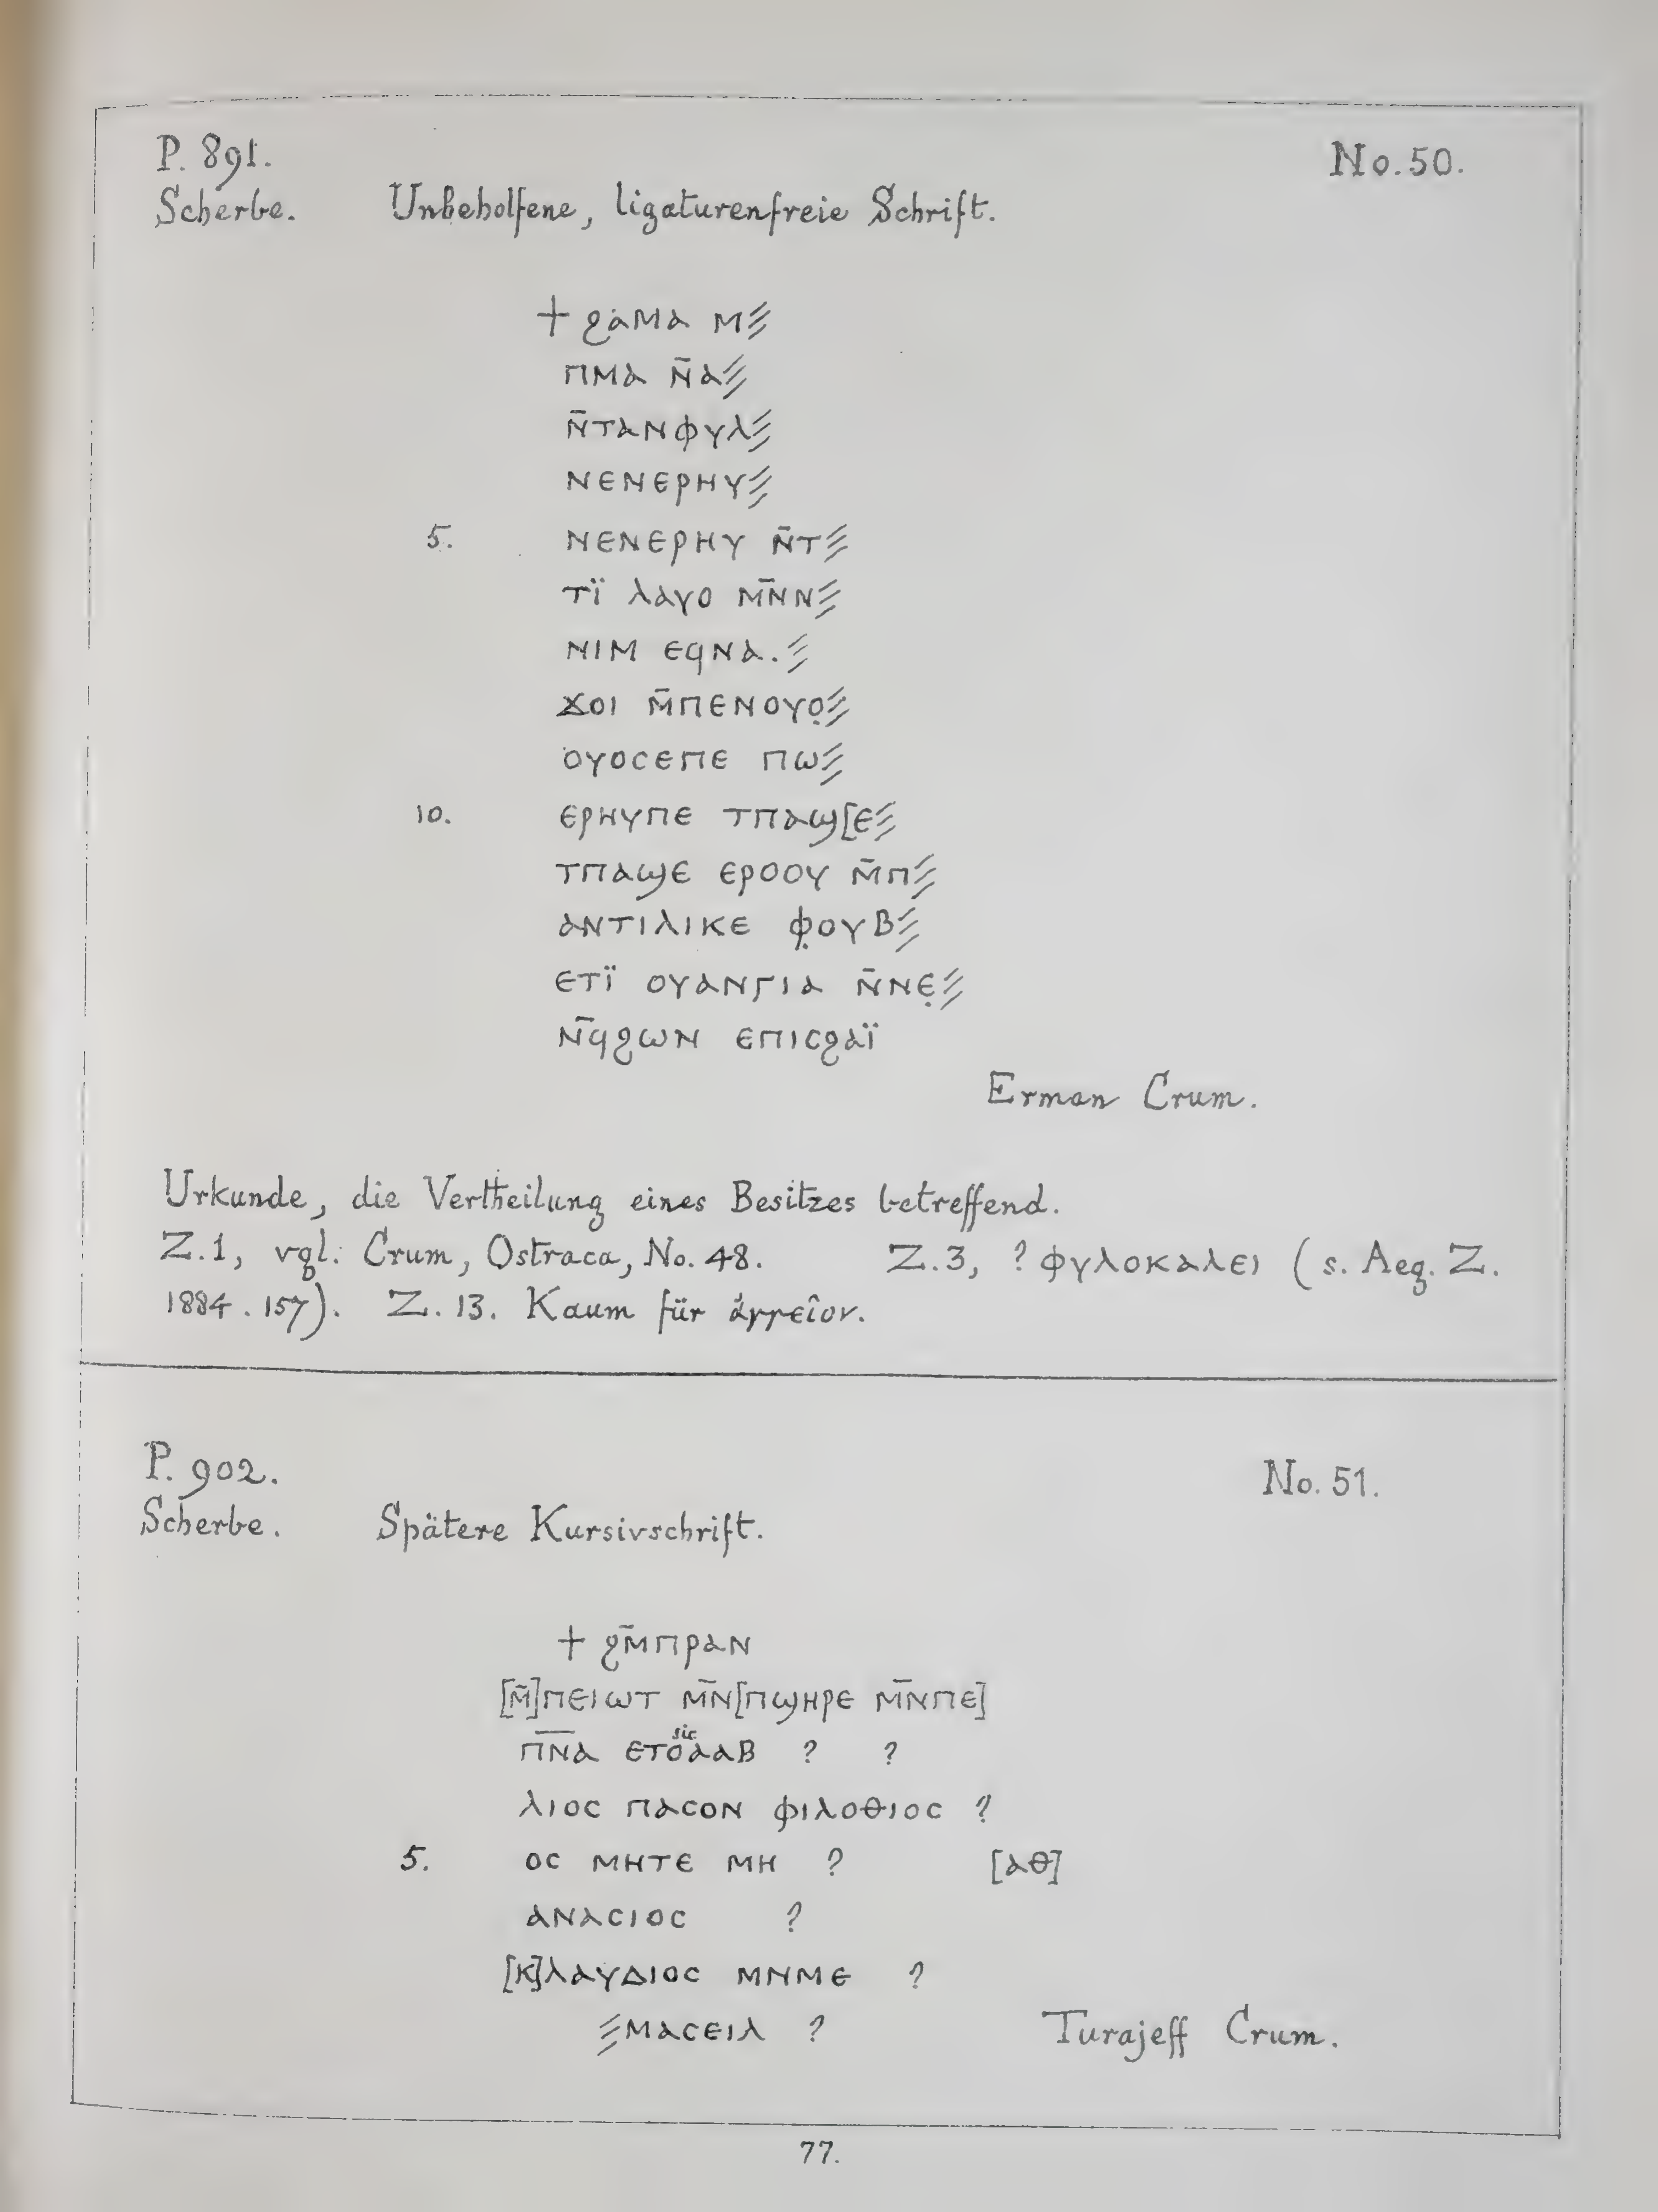 P. 891.
No. 50.
Scherbe. Unbeholfene, ligaturenfreie Schrift.
+ ϩⲁⲙⲁ ⲙ⫽
ⲡⲙⲁ ⲛ̄ⲁ⫽
ⲛ̄ⲧⲁⲛⲫⲩⲗ⫽
ⲛⲉⲛⲉⲣⲏⲩ⫽
5. ⲛⲉⲛⲉⲣⲏⲩ ⲛ̄ⲧ⫽
ⲧⲓ̈ ⲗⲁⲩⲟ ⲙⲛ̄ⲛ⫽
ⲛⲓⲙ ⲉϥⲛⲁ.⫽
ϫⲟⲓ ⲙ̄ⲡⲉⲛⲟⲩⲟ̣⫽
ⲟⲩⲟⲥⲉⲡⲉ ⲡⲱ⫽
10. ⲉⲣⲏⲩⲡⲉ ⲧⲡⲁϣ[ⲉ⫽
ⲧⲡⲁϣⲉ ⲉⲣⲟⲟⲩ ⲙ̄ⲡ⫽
ⲁⲛⲧⲓⲗⲓⲕⲉ ⲫ̣ⲟⲩⲃ⫽
ⲉⲧⲓ̈ ⲟⲩⲁⲛⲅⲓⲁ ⲛ̄ⲛⲉ̣⫽
ⲛ̄ϥϩⲱⲛ ⲉⲡⲓⲥϩⲁⲓ̈
Erman Crum.
Urkunde, die Vertheilung eines Besitzes betreffend.
Z.1, vgl. Crum, Ostraca, No. 48. Z.3, ? ⲫⲩⲗⲟⲕⲁⲗⲉⲓ (s. Aeg. Z.
1884. 157). Z. 13. Kaum für ἀγγεῖον.
P. 902.
No. 51.
Scherbe. Spätere Kursivschrift.
+ ϩⲙ̄ⲡⲣⲁⲛ
[ⲙ̄]ⲡⲉⲓⲱⲧ ⲙⲛ̄[ⲡϣⲏⲣⲉ ⲙⲛ̄ⲡⲉ]
ⲡ̅ⲛ̅ⲁ ⲉⲧⲟⲁⲁⲃ ? ?
sic
ⲗⲓⲟⲥ ⲡⲁⲥⲟⲛ ⲫⲓⲗⲟⲑⲓⲟⲥ ?
5. ⲟⲥ ⲙⲏⲧⲉ ⲙⲏ ? [ⲁⲑ]
ⲁⲛⲁⲥⲓⲟⲥ ?
[ⲕ]ⲗⲁⲩⲇⲓⲟⲥ ⲙⲛⲙⲉ ?
⫽ⲙⲁⲥⲉⲓⲗ ?
Turajeff Crum.
77.